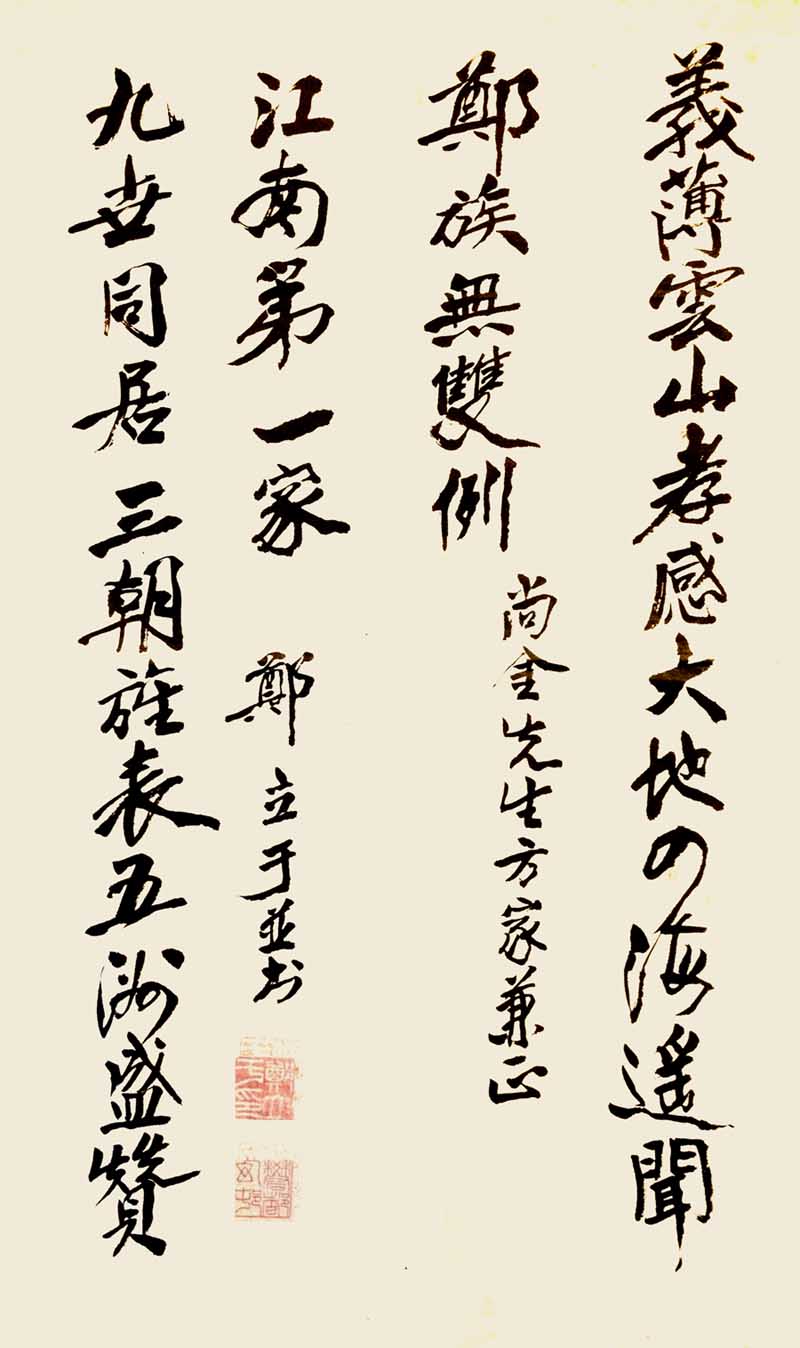 義薄雲山孝感大地四海遙聞
鄭族無雙例
尚金先生方家兼正
九世同居三朝旌表五洲盛贊
江南第一家
鄭立于並书
鄭立于印